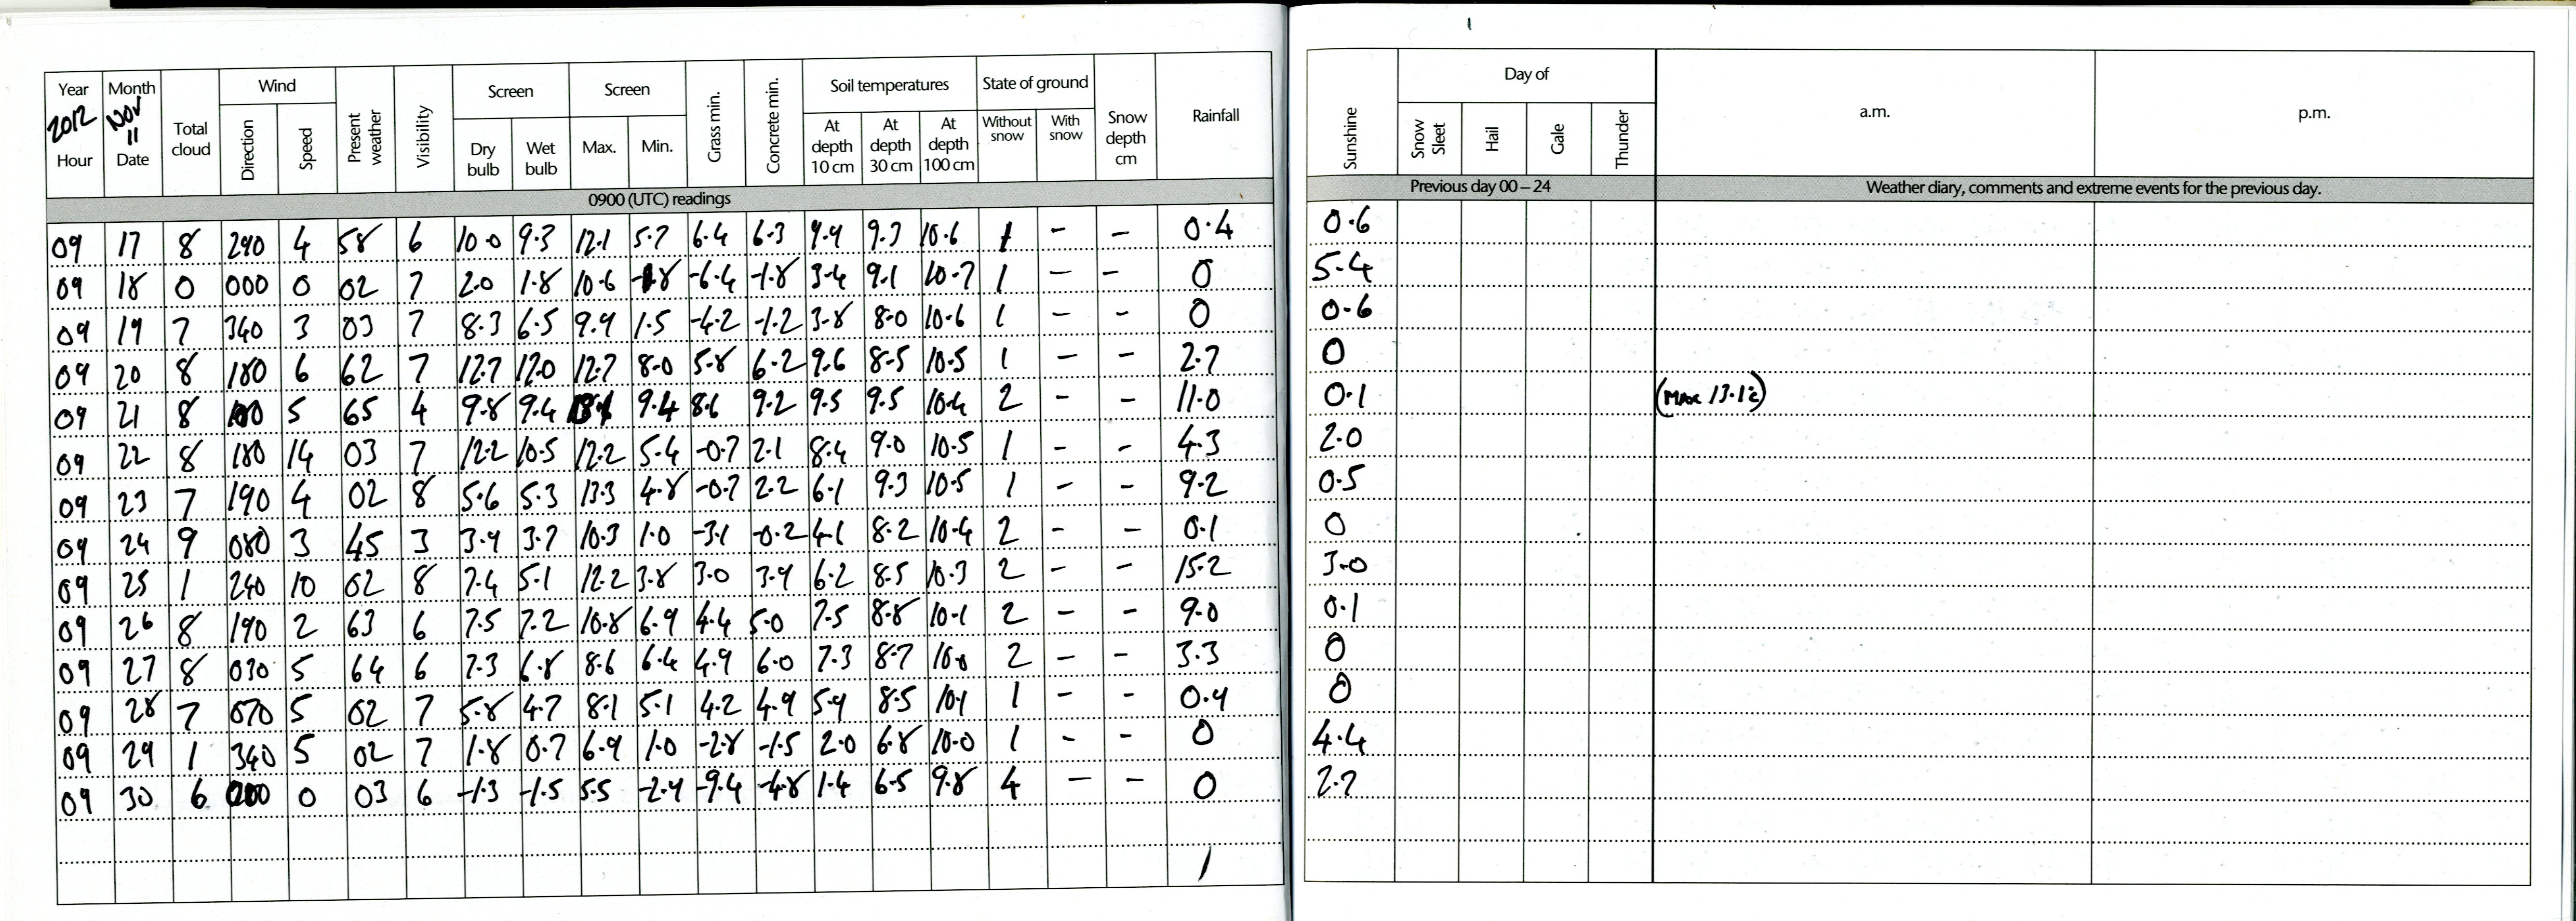 Year Month Total cloud Wind Present weather Visibility Screen Screen Grass min. Concrete min. Soil temperatures State of ground Snow depth cm Rainfall Sunshine Day of a.m. p.m.
2012 NOV 11
Hour Date Direction Speed Dry bulb Wet bulb Max. Min. At depth 10 cm At depth 30 cm At depth 100 cm Without snow With snow Snow Sleet Hail Gale Thunder
0900 (UTC) readings Previous day 00 – 24 Weather diary, comments and extreme events for the previous day.
09 17 8 290 4 58 6 10.0 9.3 12.1 5.7 6.4 6.3 9.9 9.3 10.6 1 – – 0.4 0.6
09 18 0 000 0 02 7 2.0 1.8 10.6 -1.8 -6.4 -1.8 3.4 9.1 10.7 1 – – 0 5.4
09 19 7 340 3 03 7 8.3 6.5 9.9 1.5 -4.2 -1.2 3.8 8.0 10.6 1 – – 0 0.6
09 20 8 180 6 62 7 12.7 12.0 12.7 8.0 5.8 6.2 9.6 8.5 10.5 1 – – 2.7 0
09 21 8 5 65 4 9.8 9.4 9.4 8.6 9.2 9.5 9.5 10.4 2 – – 11.0 0.1 (MAX 13.1°C)
09 22 8 180 14 03 7 12.2 10.5 12.2 5.4 -0.7 2.1 8.4 9.0 10.5 1 – – 4.3 2.0
09 23 7 190 4 02 8 5.6 5.3 13.3 4.8 -0.7 2.2 6.1 9.3 10.5 1 – – 9.2 0.5
09 24 9 080 3 45 3 3.9 3.7 10.3 1.0 -3.1 -0.2 4.1 8.2 10.4 2 – – 0.1 0
09 25 1 240 10 02 8 7.4 5.1 12.2 3.8 3.0 3.9 6.2 8.5 10.3 2 – – 15.2 3.0
09 26 8 190 2 63 6 7.5 7.2 10.8 6.9 4.4 5.0 7.5 8.8 10.1 2 – – 9.0 0.1
09 27 8 030 5 64 6 7.3 6.8 8.6 6.4 4.9 6.0 7.3 8.7 10.0 2 – – 3.3 0
09 28 7 070 5 02 7 5.8 4.7 8.1 5.1 4.2 4.9 5.9 8.5 10.1 1 – – 0.4 0
09 29 1 340 5 02 7 1.8 0.7 6.9 1.0 -2.8 -1.5 2.0 6.8 10.0 1 – – 0 4.4
09 30 6 000 0 03 6 -1.3 -1.5 5.5 -2.9 -9.4 -4.8 1.4 6.5 9.8 4 – – 0 2.7